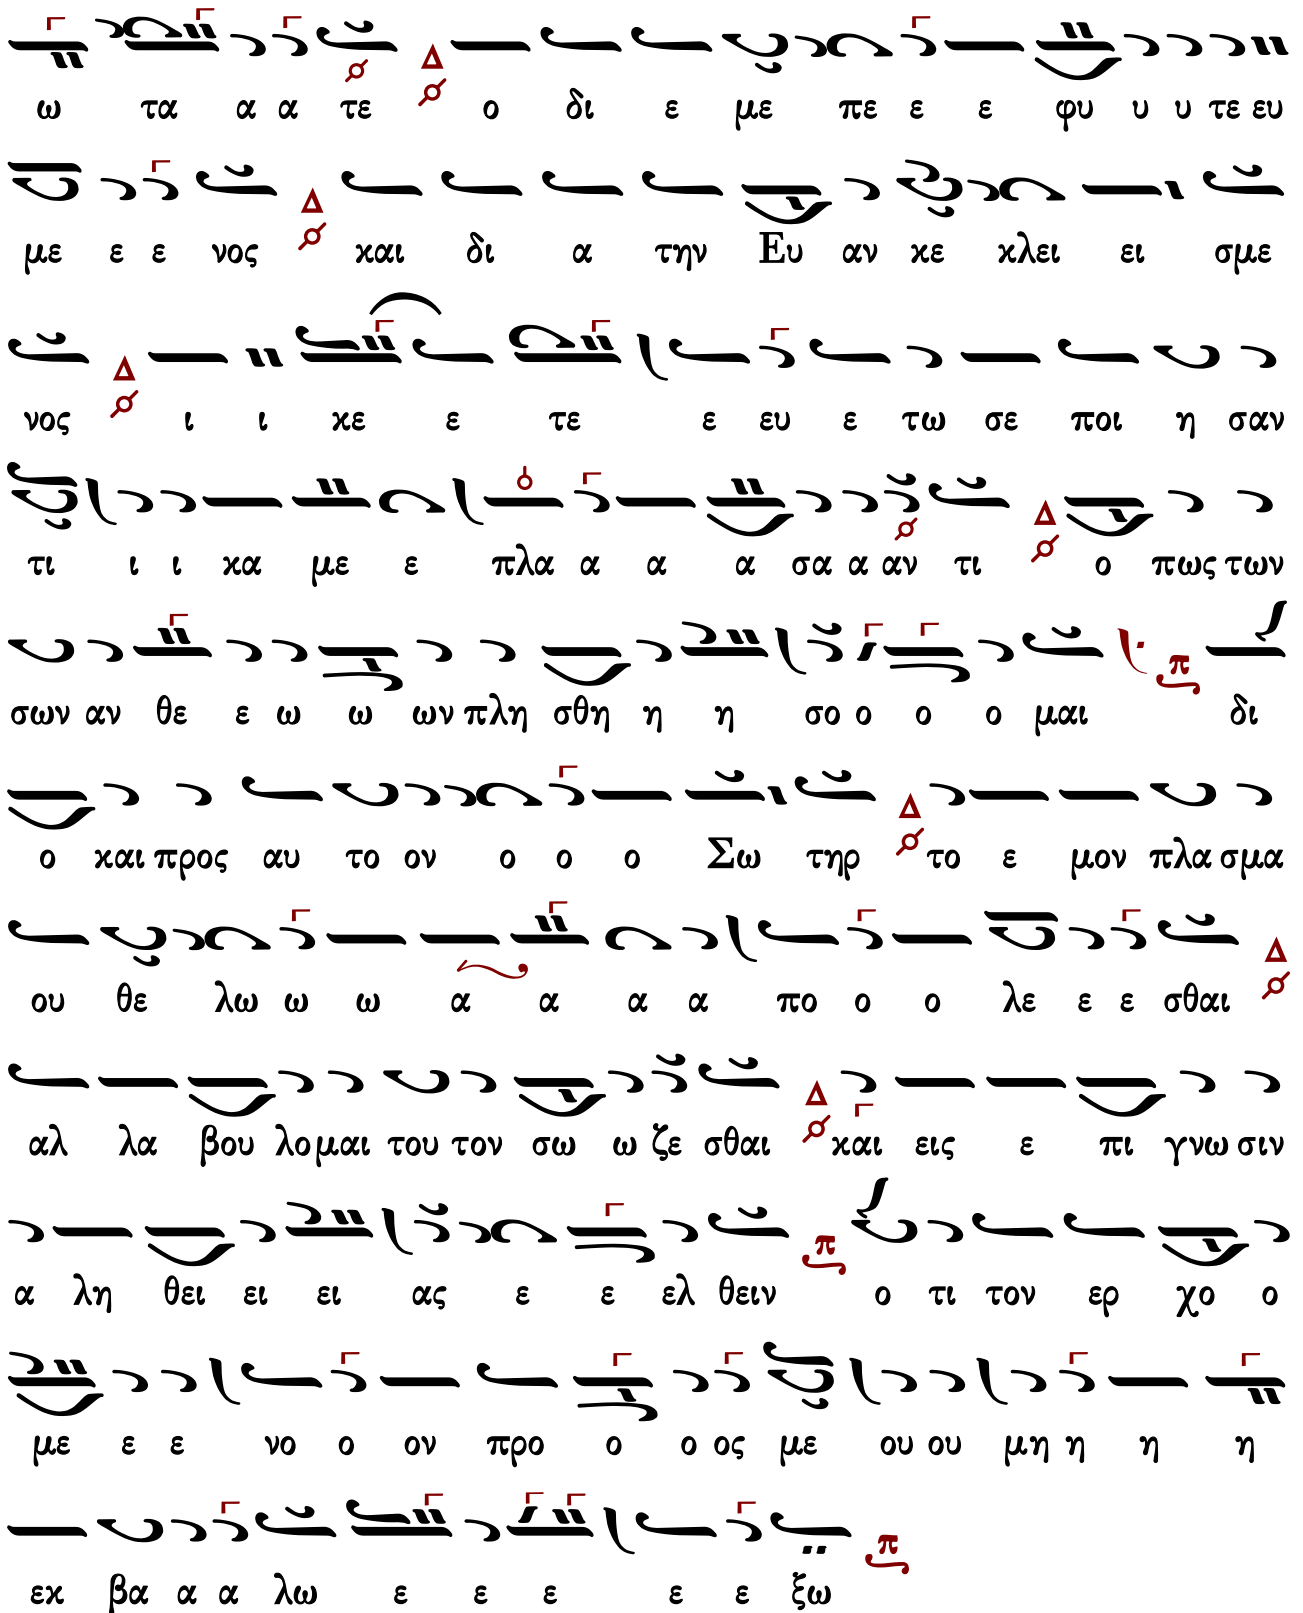 ω τα α α τε ο δι ε με πε ε ε φυ υ υ τε ευ
με ε ε νος και δι α την Ευ αν κε κλει ει σμε
νος ι ι κε ε τε ε ευ ε τω σε ποι η σαν
τι ι ι κα με ε πλα α α α σα α αν τι ο πως των
σων αν θε ε ω ω ων πλη σθη η η σο ο ο ο μαι δι
ο και προς αυ το ον ο ο ο Σω τηρ το ε μον πλα σμα
ου θε λω ω ω α α α α πο ο ο λε ε ε σθαι
αλ λα βου λο μαι του τον σω ω ζε σθαι και εις ε πι γνω σιν
α λη θει ει ει ας ε ε ελ θειν ο τι τον ερ χο ο
με ε ε νο ο ον προ ο ο ος με ου ου μη η η η
εκ βα α α λω ε ε ε ε ε ξω